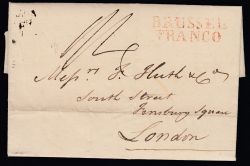 BRUSSEL
FRANCO
Mess.rs F. Huth & Co
South Street
Finsbury Square
London